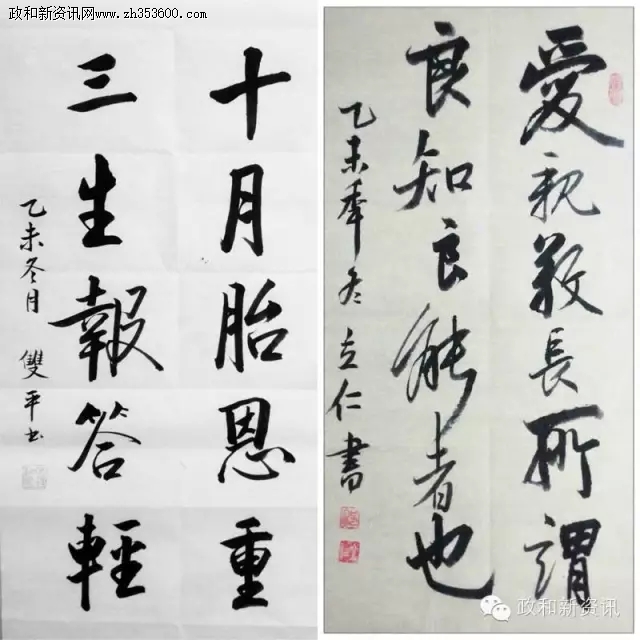 政和新资讯网
www.zh353600.com
十月胎恩重
三生報答輕
乙未冬月 雙平书
愛親敬長所謂
良知良能者也
乙未季冬 立仁書
政和新资讯